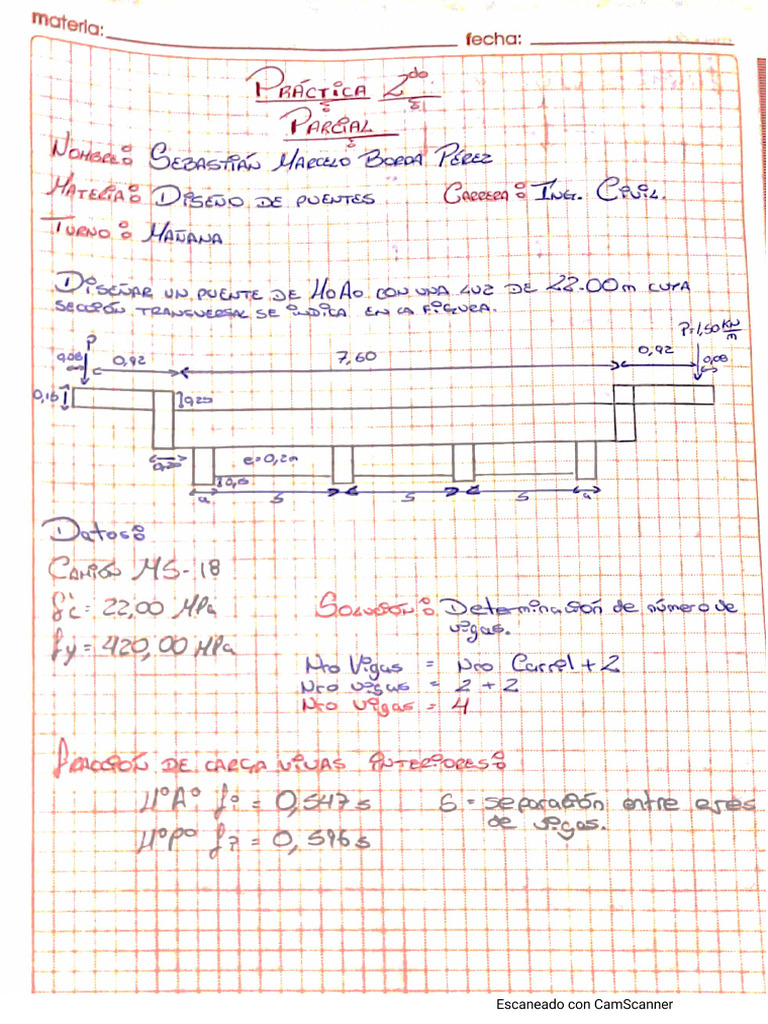 materia:
fecha:
PRÁCTICA 2do
PARCIAL
NOMBRE: SEBASTIÁN MARCELO BORDA PÉREZ
MATERIA: DISEÑO DE PUENTES CARRERA: ING. CIVIL.
TURNO: MAÑANA
DISEÑAR UN PUENTE DE HoAo CON UNA LUZ DE 22.00m CUYA
SECCIÓN TRANSVERSAL SE INDICA EN LA FIGURA.
P P=1,50 KN/m
0,08 0,92 7,60 0,92 0,08
0,15 0,25
0,20 e=0,2m
a s s s a
Datos:
CAMIÓN MS-18
f'c = 22,00 MPa SOLUCIÓN: Determinación de número de
vigas.
fy = 420,00 MPa
Nro Vigas = Nro Carril + 2
Nro vigas = 2 + 2
Nro vigas = 4
FRACCIÓN DE CARGA VIVAS INTERIORES:
HºAº fi = 0,547 s S = separación entre ejes
de vigas.
HºPº fi = 0,596 s
Escaneado con CamScanner